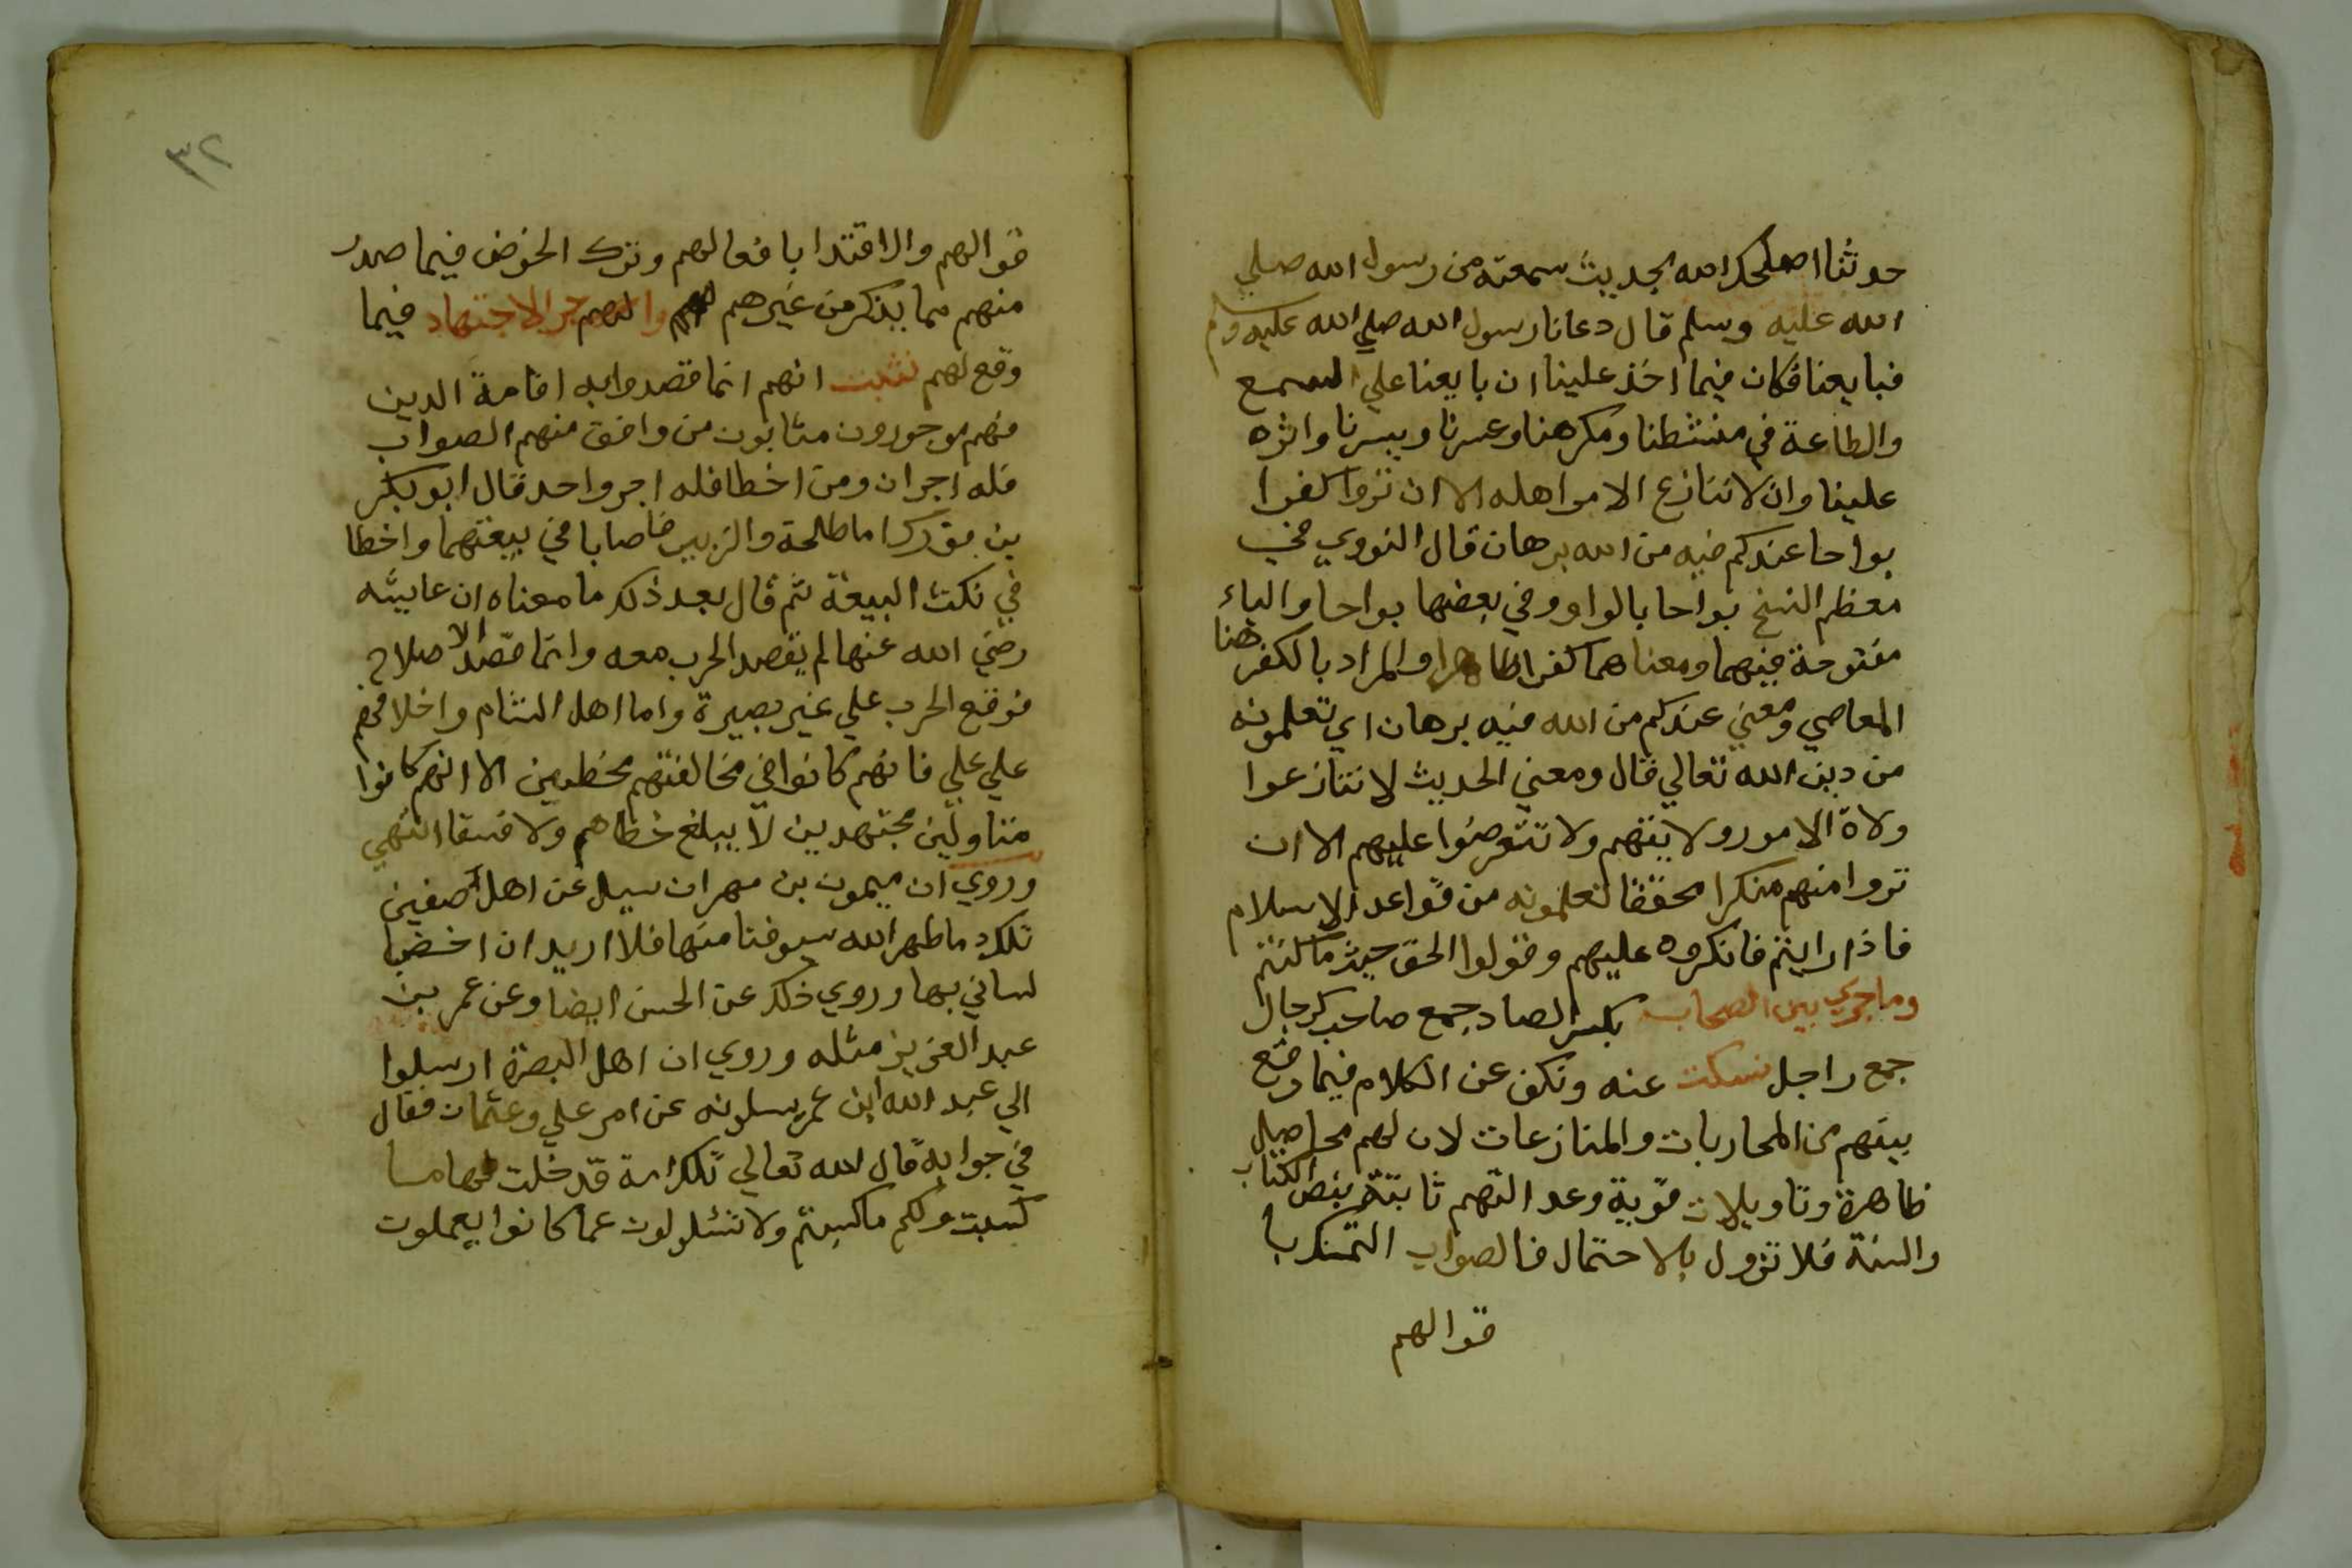 حدثنا اصلحك الله بحديث سمعته من رسول الله صلي
الله عليه وسلم قال دعانا رسول الله صلي الله عليه وسلم
فبايعنا فكان فيما اخذ علينا ان بايعنا علي السمع
والطاعة في منشطنا ومكرهنا وعسرنا ويسرنا واثره
علينا وان لا ننازع الامر اهله الا ان تروا كفرا
بواحا عندكم فيه من الله برهان قال النووي في
معظم النسخ بواحا بالواو وفي بعضها بواحا والباء
مفتوحة فيهما ومعناهما كفرا ظاهرا والمراد بالكفر هنا
المعاصي ومعني عندكم من الله فيه برهان اي تعلمونه
من دين الله تعالي قال ومعني الحديث لا تنازعوا
ولاة الامور ولايتهم ولا تتعرضوا عليهم الا ان
تروا منهم منكرا محققا تعلمونه من قواعد الاسلام
فاذا رايتم فانكروه عليهم وقولوا الحق حيث ما كنتم
وما جري بين الصحاب بكسر الصاد جمع صاحب كرجال
جمع راجل نسكت عنه ونكف عن الكلام فيما وقع
بينهم من المحاربات والمنازعات لان لهم محاصيل
ظاهرة وتاويلات قوية وعدالتهم ثابتة بنص الكتاب
والسنة فلا تزول بالاحتمال فالصواب التمسك با
قوالهم
٣٢
قوالهم والاقتدا بافعالهم وترك الخوض فيما صدر
منهم مما يذكر من غيرهم لهم اجر الاجتهاد فيما
وقع لهم نثبت انهم انما قصدوا به اقامة الدين
فهم موجورون مثابون من وافق منهم الصواب
فله اجران ومن اخطا فله اجر واحد قال ابو بكر
بن فورك اما طلحة والزبير فاصابا في بيعتهما واخطا
في نكث البيعة ثم قال بعد ذلك ما معناه ان عايشه
رضي الله عنها لم يقصد الحرب معه وانما قصد الاصلاح
فوقع الحرب علي غير بصيرة واما اهل الشام واخلافهم
علي علي فانهم كانوا في مخالفتهم مخطيين الا انهم كانوا
متاولين مجتهدين لا يبلغ خطاهم ولا فسقا انتهي
وروي ان ميمون بن مهران سيل عن اهل صفين
تلك دما طهر الله سيوفنا منها فلا اريد ان اخضب
لساني بها وروي ذلك عن الحسن ايضا وعن عمر بن
عبد العزيز مثله وروي ان اهل البصرة ارسلوا
الي عبد الله ابن عمر يسلونه عن امر علي وعثمان فقال
في جوابه قال الله تعالي تلك امة قد خلت لها ما
كسبت ولكم ما كسبتم ولا تسئلون عما كانوا يعملون